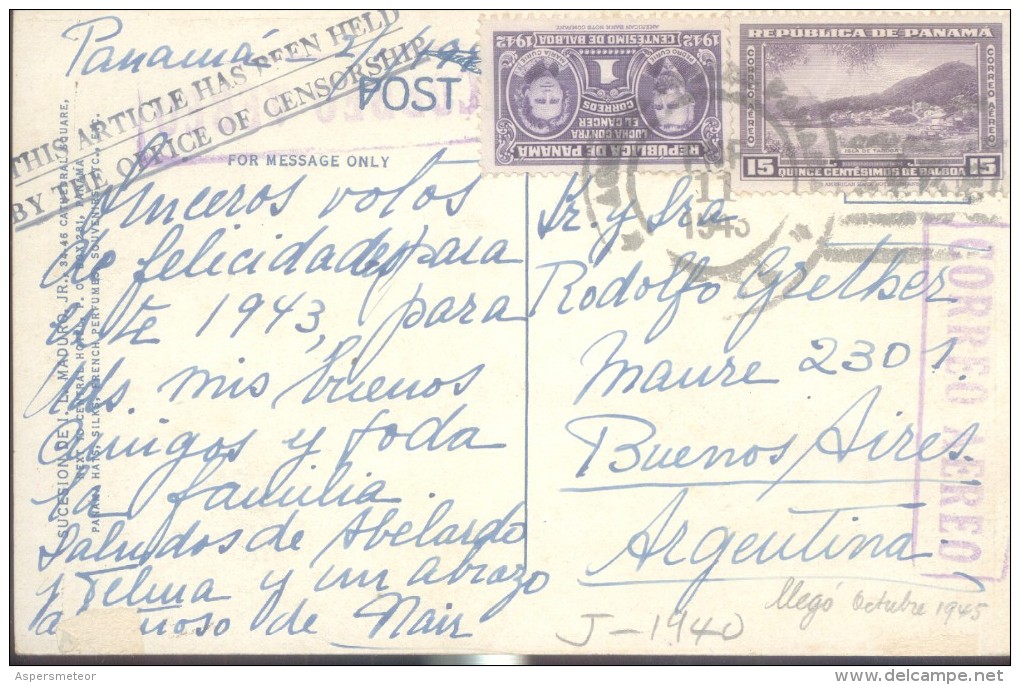 Panamá
THIS ARTICLE HAS BEEN HELD
BY THE OFFICE OF CENSORSHIP
POST
FOR MESSAGE ONLY
Sinceros votos
de felicidades para
este 1943, para
Uds. mis buenos
amigos y toda
la familia.
Saludos de Abelardo
y Telma y un abrazo
de Nair
SUCESION DE J. L. MADURO, JR., 34-46 CATHEDRAL SQUARE,
NEXT TO CENTRAL HOTEL, P. O. BOX 281, PANAMA
PANAMA HATS, SILKS, FRENCH PERFUMES, SOUVENIRS, ETC., ETC.
REPÚBLICA DE PANAMÁ
LUCHA CONTRA
EL CANCER
CORREOS
1
1942 CENTÉSIMO DE BALBOA 1942
AMERICAN BANK NOTE COMPANY
REPÚBLICA DE PANAMÁ
CORREO AÉREO
CORREO AÉREO
ISLA DE TABOGA
15 QUINCE CENTÉSIMOS DE BALBOA 15
11
1943
Sr. y Sra
Rodolfo Grether
Maure 2301.
Buenos Aires.
Argentina
CORREO AEREO
llegó Octubre 1945
J-1940
Aspersmeteor
delcampe.net